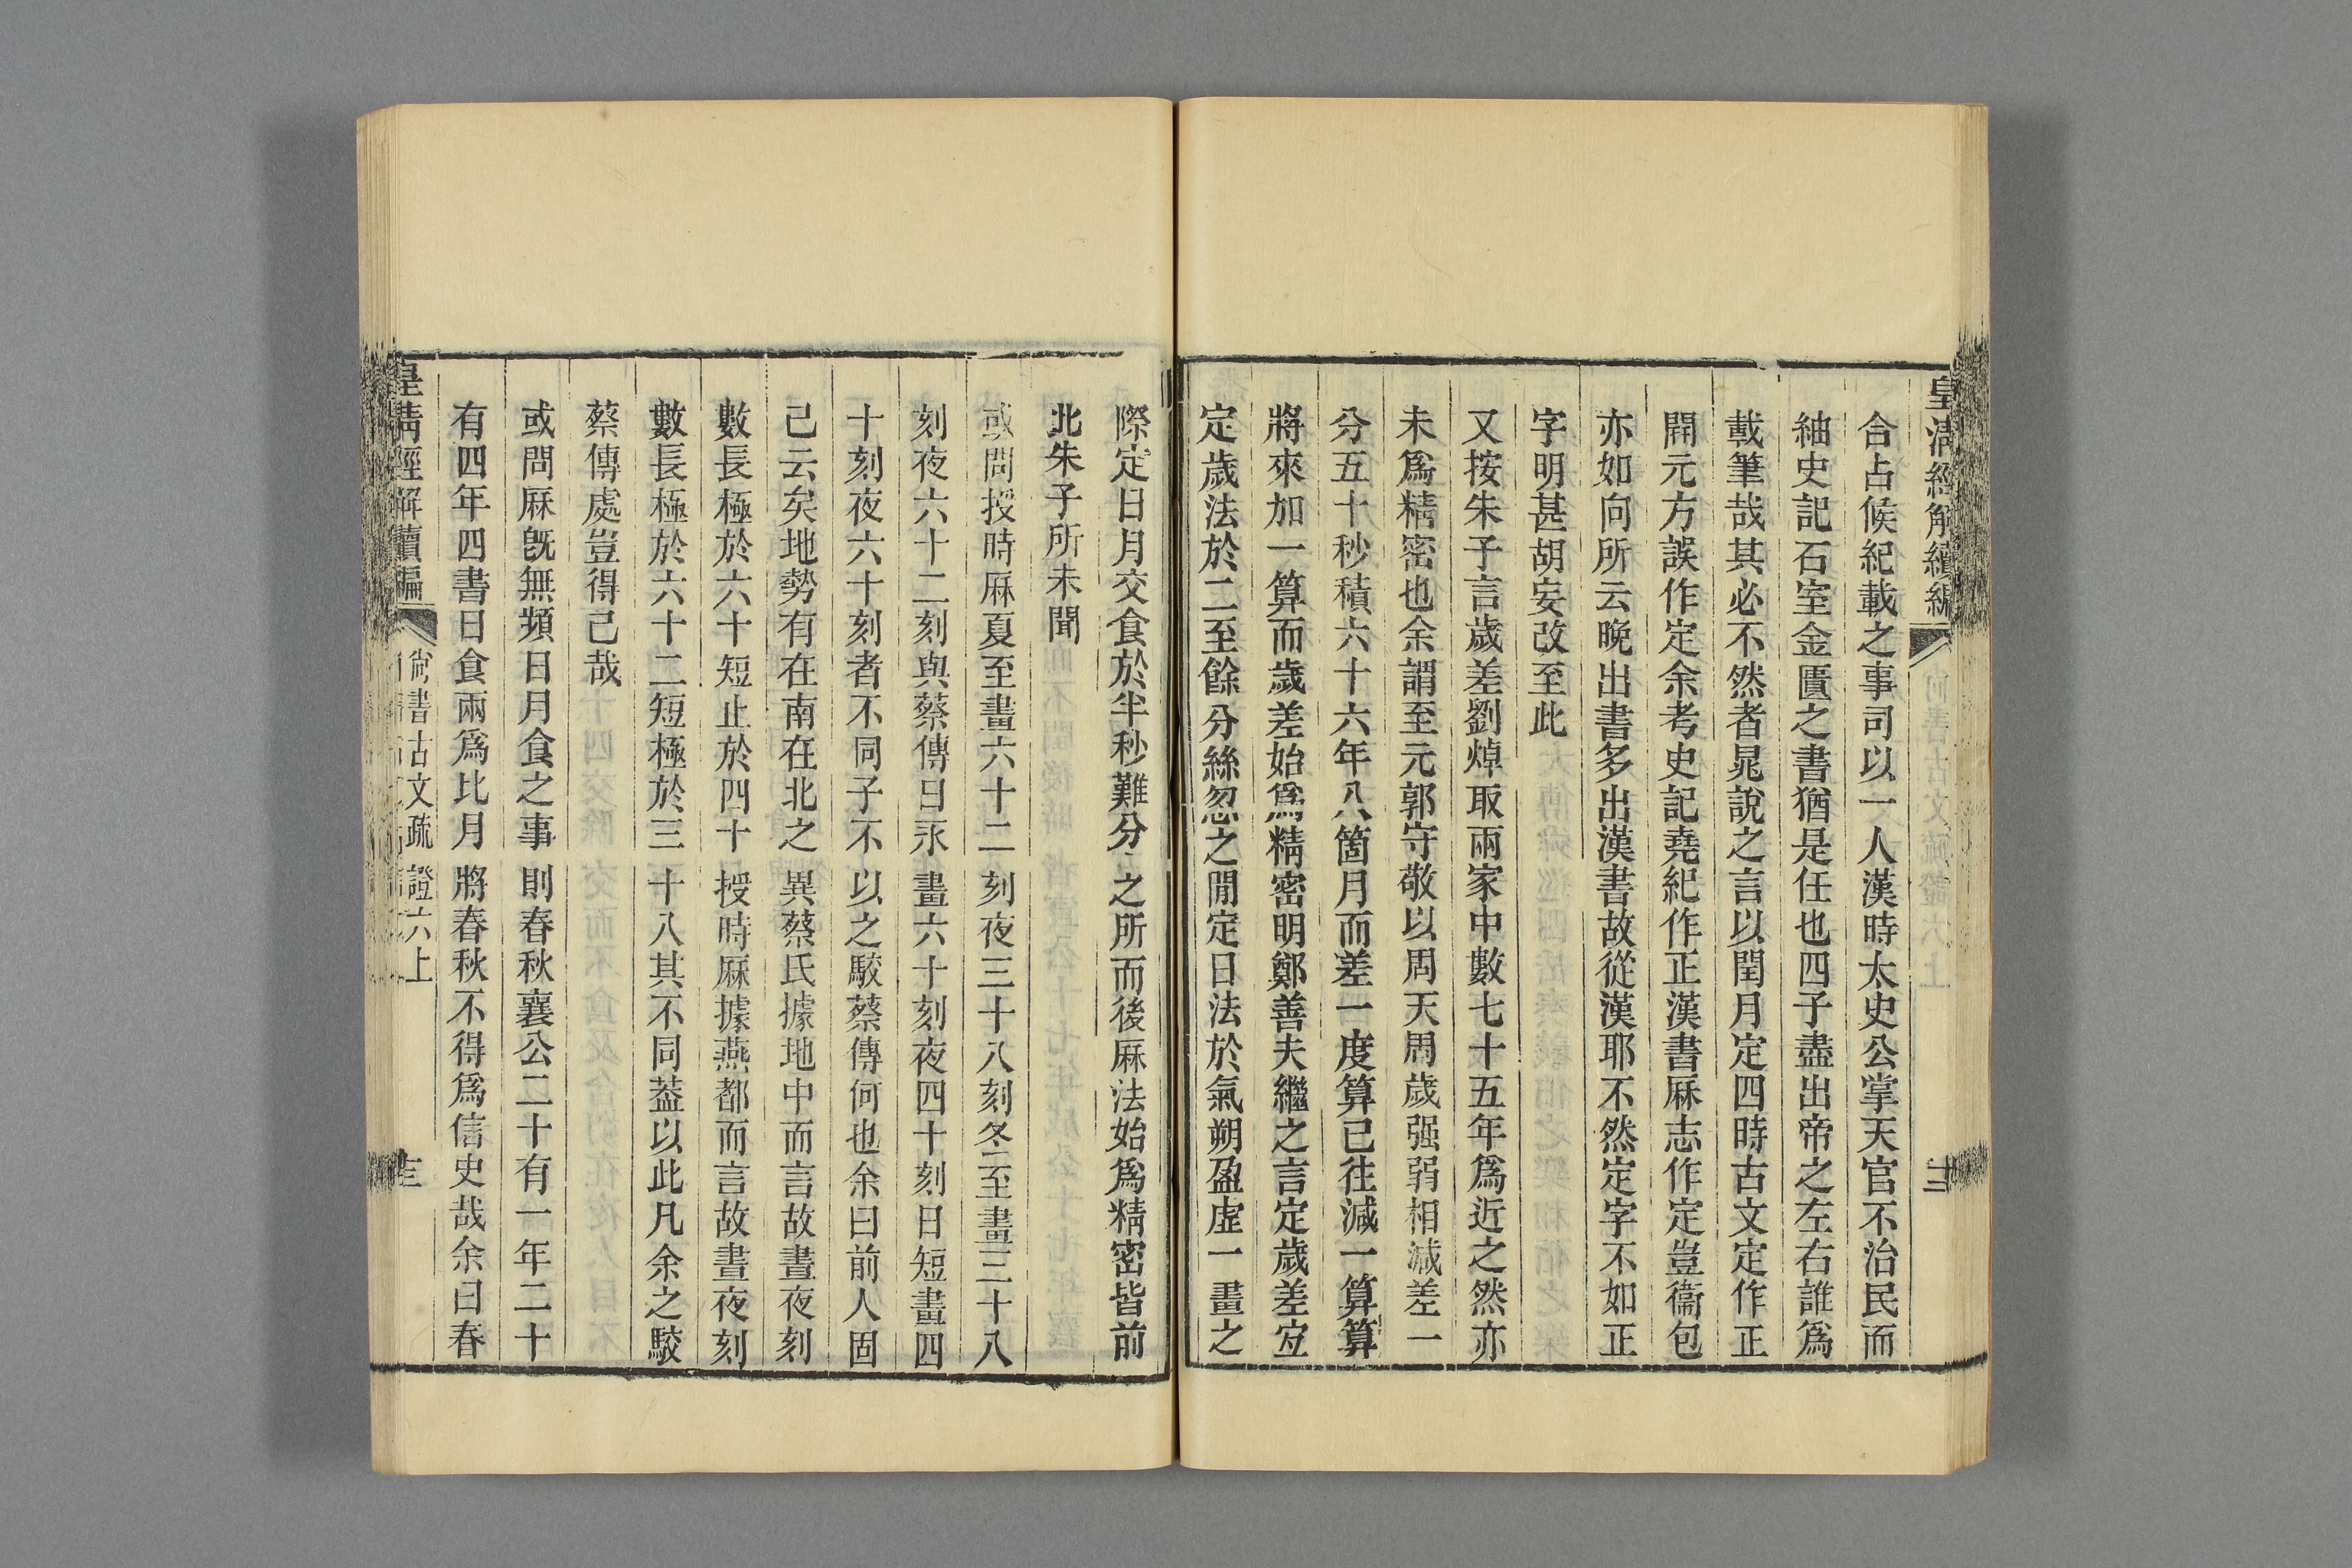 皇清經解續編
合占候紀載之事司以一人漢時太史公掌天官不治民而
紬史記石室金匱之書猶是任也四子盡出帝之左右誰爲
載筆哉其必不然者晁說之言以閏月定四時古文定作正
開元方誤作定余考史記堯紀作正漢書厤志作定豈衞包
亦如向所云晚出書多出漢書故從漢耶不然定字不如正
字明甚胡妄改至此
又按朱子言歲差劉焯取兩家中數七十五年爲近之然亦
未爲精密也余謂至元郭守敬以周天周歲强弱相減差一
分五十秒積六十六年八箇月而差一度算已往減一算算
將來加一算而歲差始爲精密明鄭善夫繼之言定歲差宐
定歲法於二至餘分絲忽之閒定日法於氣朔盈虛一畫之
際定日月交食於半秒難分之所而後厤法始爲精密皆前
北朱子所未聞
或問授時厤夏至晝六十二刻夜三十八刻冬至晝三十八
刻夜六十二刻與蔡傳日永晝六十刻夜四十刻日短晝四
十刻夜六十刻者不同子不以之駮蔡傳何也余曰前人固
己云矣地勢有在南在北之異蔡氏據地中而言故晝夜刻
數長極於六十短止於四十授時厤據燕都而言故晝夜刻
數長極於六十二短極於三十八其不同葢以此凡余之駮
蔡傳處豈得己哉
或問厤旣無頻日月食之事則春秋襄公二十有一年二十
有四年四書日食兩爲比月將春秋不得爲信史哉余曰春
皇清經解續編
尙書古文疏證六上